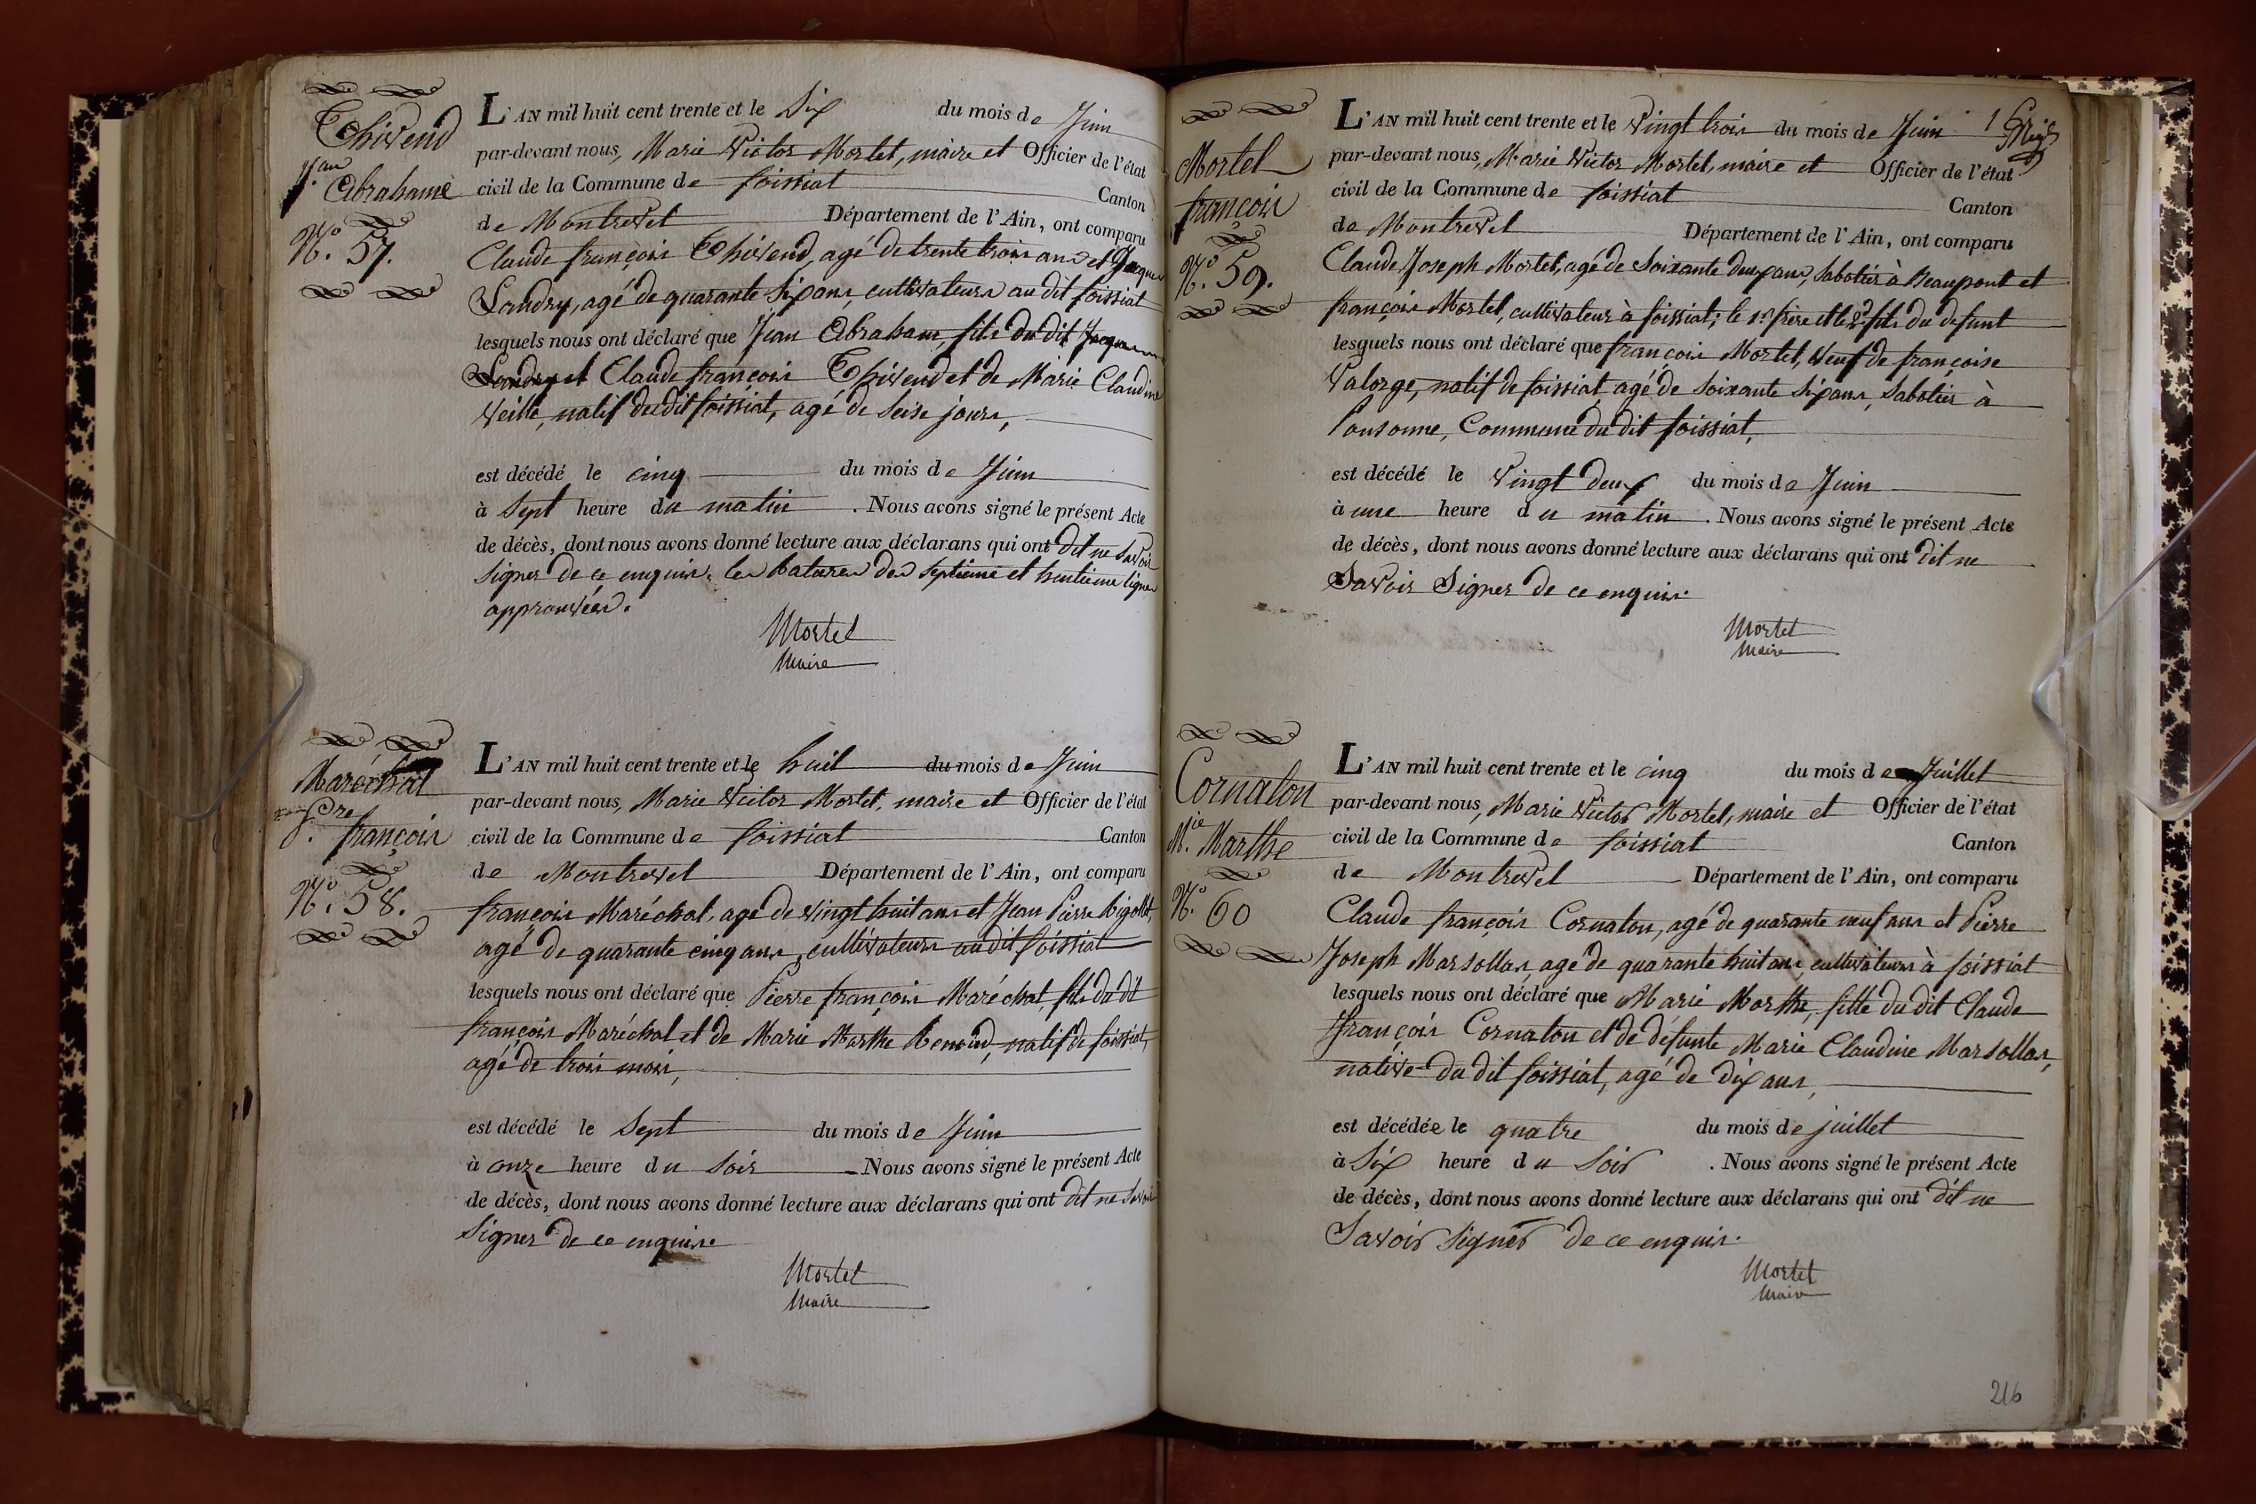 Thivend
J.an Abrahame
N.o 57.
L'AN mil huit cent trente et le Six du mois de Juin
par-devant nous, Marie Victor Mortel, maire et Officier de l'état
civil de la Commune de foissiat Canton
de Montrevel Département de l'Ain, ont comparu
Claude françois Thivend, agé de trente trois ans et Jacques
Landry, agé de quarante Six ans, cultivateurs au dit foissiat
lesquels nous ont déclaré que Jean Abraham, fils du dit Jacques
Landry et Claude françois Thivend et de Marie Claudine
Veille, natif du dit foissiat, agé de Seise jours,
est décédé le cinq du mois de Juin
à Sept heure du matin . Nous avons signé le présent Acte
de décès, dont nous avons donné lecture aux déclarans qui ont dit ne Savoir
Signer de ce enquis. les ratures des Septieme et huitieme lignes
approuvées.
Mortel
Maire
Maréchal
P.re
françois
N.o 58.
L'AN mil huit cent trente et le huit du mois de Juin
par-devant nous, Marie Victor Mortel, maire et Officier de l'état
civil de la Commune de foissiat Canton
de Montrevel Département de l'Ain, ont comparu
françois Maréchal, agé de vingt huit ans et Jean Pierre Rigollet,
agé de quarante cinq ans, cultivateurs au dit foissiat
lesquels nous ont déclaré que Pierre françois Maréchal, fils du dit
françois Maréchal et de Marie Marthe Renoud, natif de foissiat,
agé de trois mois,
est décédé le Sept du mois de Juin
à onze heure du Soir Nous avons signé le présent Acte
de décès, dont nous avons donné lecture aux déclarans qui ont dit ne Savoir
Signer de ce enquis.
Mortel
Maire
Mortel
françois
N.o 59.
L'AN mil huit cent trente et le Vingt trois du mois de Juin
par-devant nous, Marie Victor Mortel, maire et Officier de l'état
civil de la Commune de foissiat Canton
de Montrevel Département de l'Ain, ont comparu
Claude Joseph Mortel, agé de Soixante deux ans, Sabotier à Beaupont et
françois Mortel, cultivateur à foissiat; le 1.er frère et le 2.d fils du defunt
lesquels nous ont déclaré que françois Mortel, Veuf de françoise
Valorge, natif de foissiat, agé de Soixante Six ans, Sabotier à
Ponsonne, Commune du dit foissiat,
est décédé le Vingt deux du mois de Juin
à une heure du matin . Nous avons signé le présent Acte
de décès, dont nous avons donné lecture aux déclarans qui ont dit ne
Savoir Signer de ce enquis.
Mortel
Maire
Cornaton
M.ie Marthe
N.o 60
L'AN mil huit cent trente et le cinq du mois de Juillet
par-devant nous, Marie Victor Mortel, maire et Officier de l'état
civil de la Commune de foissiat Canton
de Montrevel Département de l'Ain, ont comparu
Claude françois Cornaton, agé de quarante neuf ans et Pierre
Joseph Marsollas, agé de quarante huit ans, cultivateurs à foissiat
lesquels nous ont déclaré que Marie Marthe, fille du dit Claude
françois Cornaton et de défunte Marie Claudine Marsollas,
native du dit foissiat, agé de dix ans,
est décédée le quatre du mois de juillet
à Six heure du Soir . Nous avons signé le présent Acte
de décès, dont nous avons donné lecture aux déclarans qui ont dit ne
Savoir Signer de ce enquis.
Mortel
Maire
216